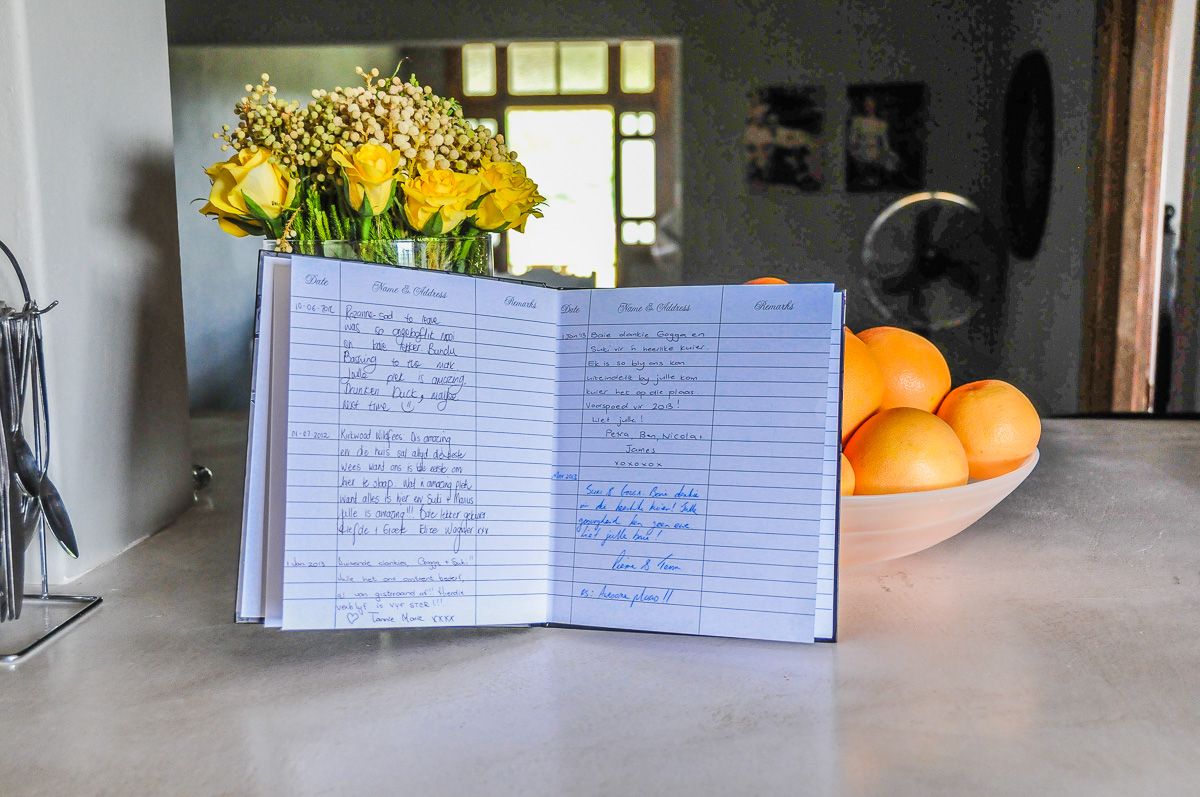 Date Name & Address Remarks
10-06-2012 Rozanne-sad to leave
was so ongelooflik mooi
en baie lekker Bundu
Bashing to the max
Julle plek is amazing
Drunken Duck, maybe
next time
01-07-2012 Kirkwood Wildfees. Dis amazing
en die huis sal altyd die beste
wees want ons is die eerste om
hier te slaap. Wat 'n amazing plek
want alles is hier en Suki + Marius
Julle is amazing!!! Baie lekker gekuier.
Liefde + Groete Elize xxx
1 Jan 2013 Duisende dankies Gogga + Suki"
Julle het ons ontsaens bederf,
verblyf is VYF STER!!!
♡ Tannie Marie xxxx
Date Name & Address Remarks
1 Jan 13 Baie dankie Gogga en
Suki vir 'n heerlike kuier.
Ek is so bly ons kon
uiteindelik by julle kom
kuier het op die plaas
Voorspoed vir 2013!
Liet julle!
Petra, Ben, Nicola,
James
xoxoxox
2013 Suki & Gogga Baie dankie
vir die heerlike kuier! Julle
gasvryheid ken geen
Liet julle baie!
& Tessa
PS: Awesome plaas!!